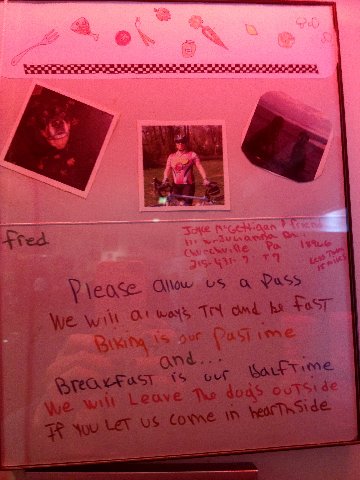 fred
Joyce McGettigan & friend
111 W.
Churchville Pa 18966
Less Than
15 miles
Please allow us a Pass
We will always Try and be fast
Biking is our Pastime
and...
Breakfast is our Halftime
We will Leave The dogs outside
If you Let us come in hearthside